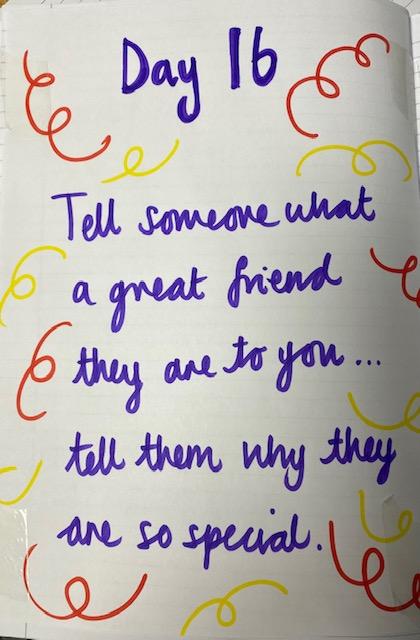 Day 16
Tell someone what
a great friend
they are to you...
tell them why they
are so special.